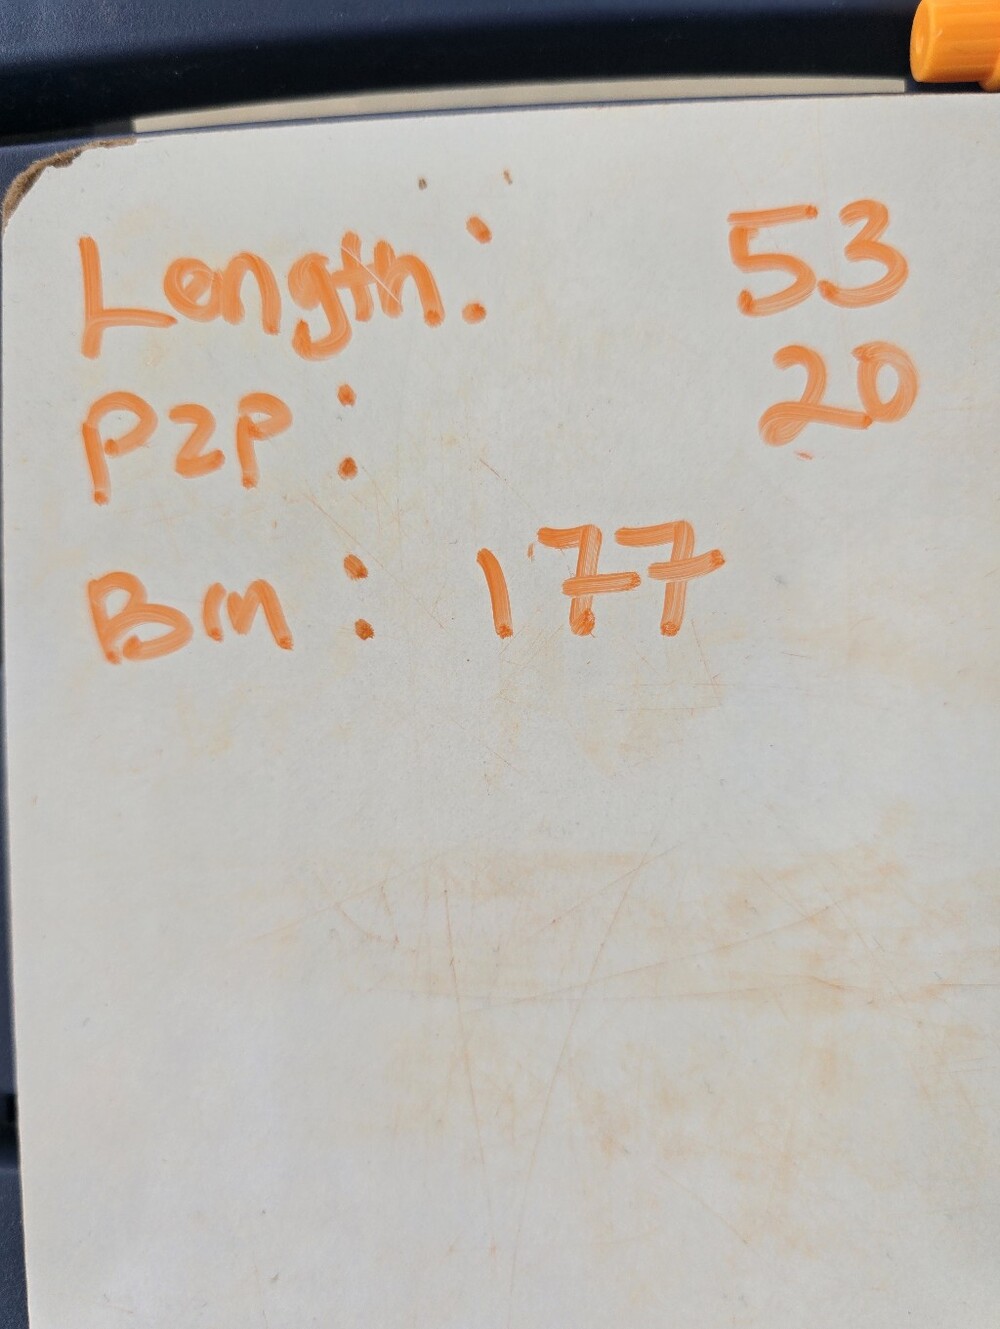 Length: 53
P2P: 20
Bm: 177